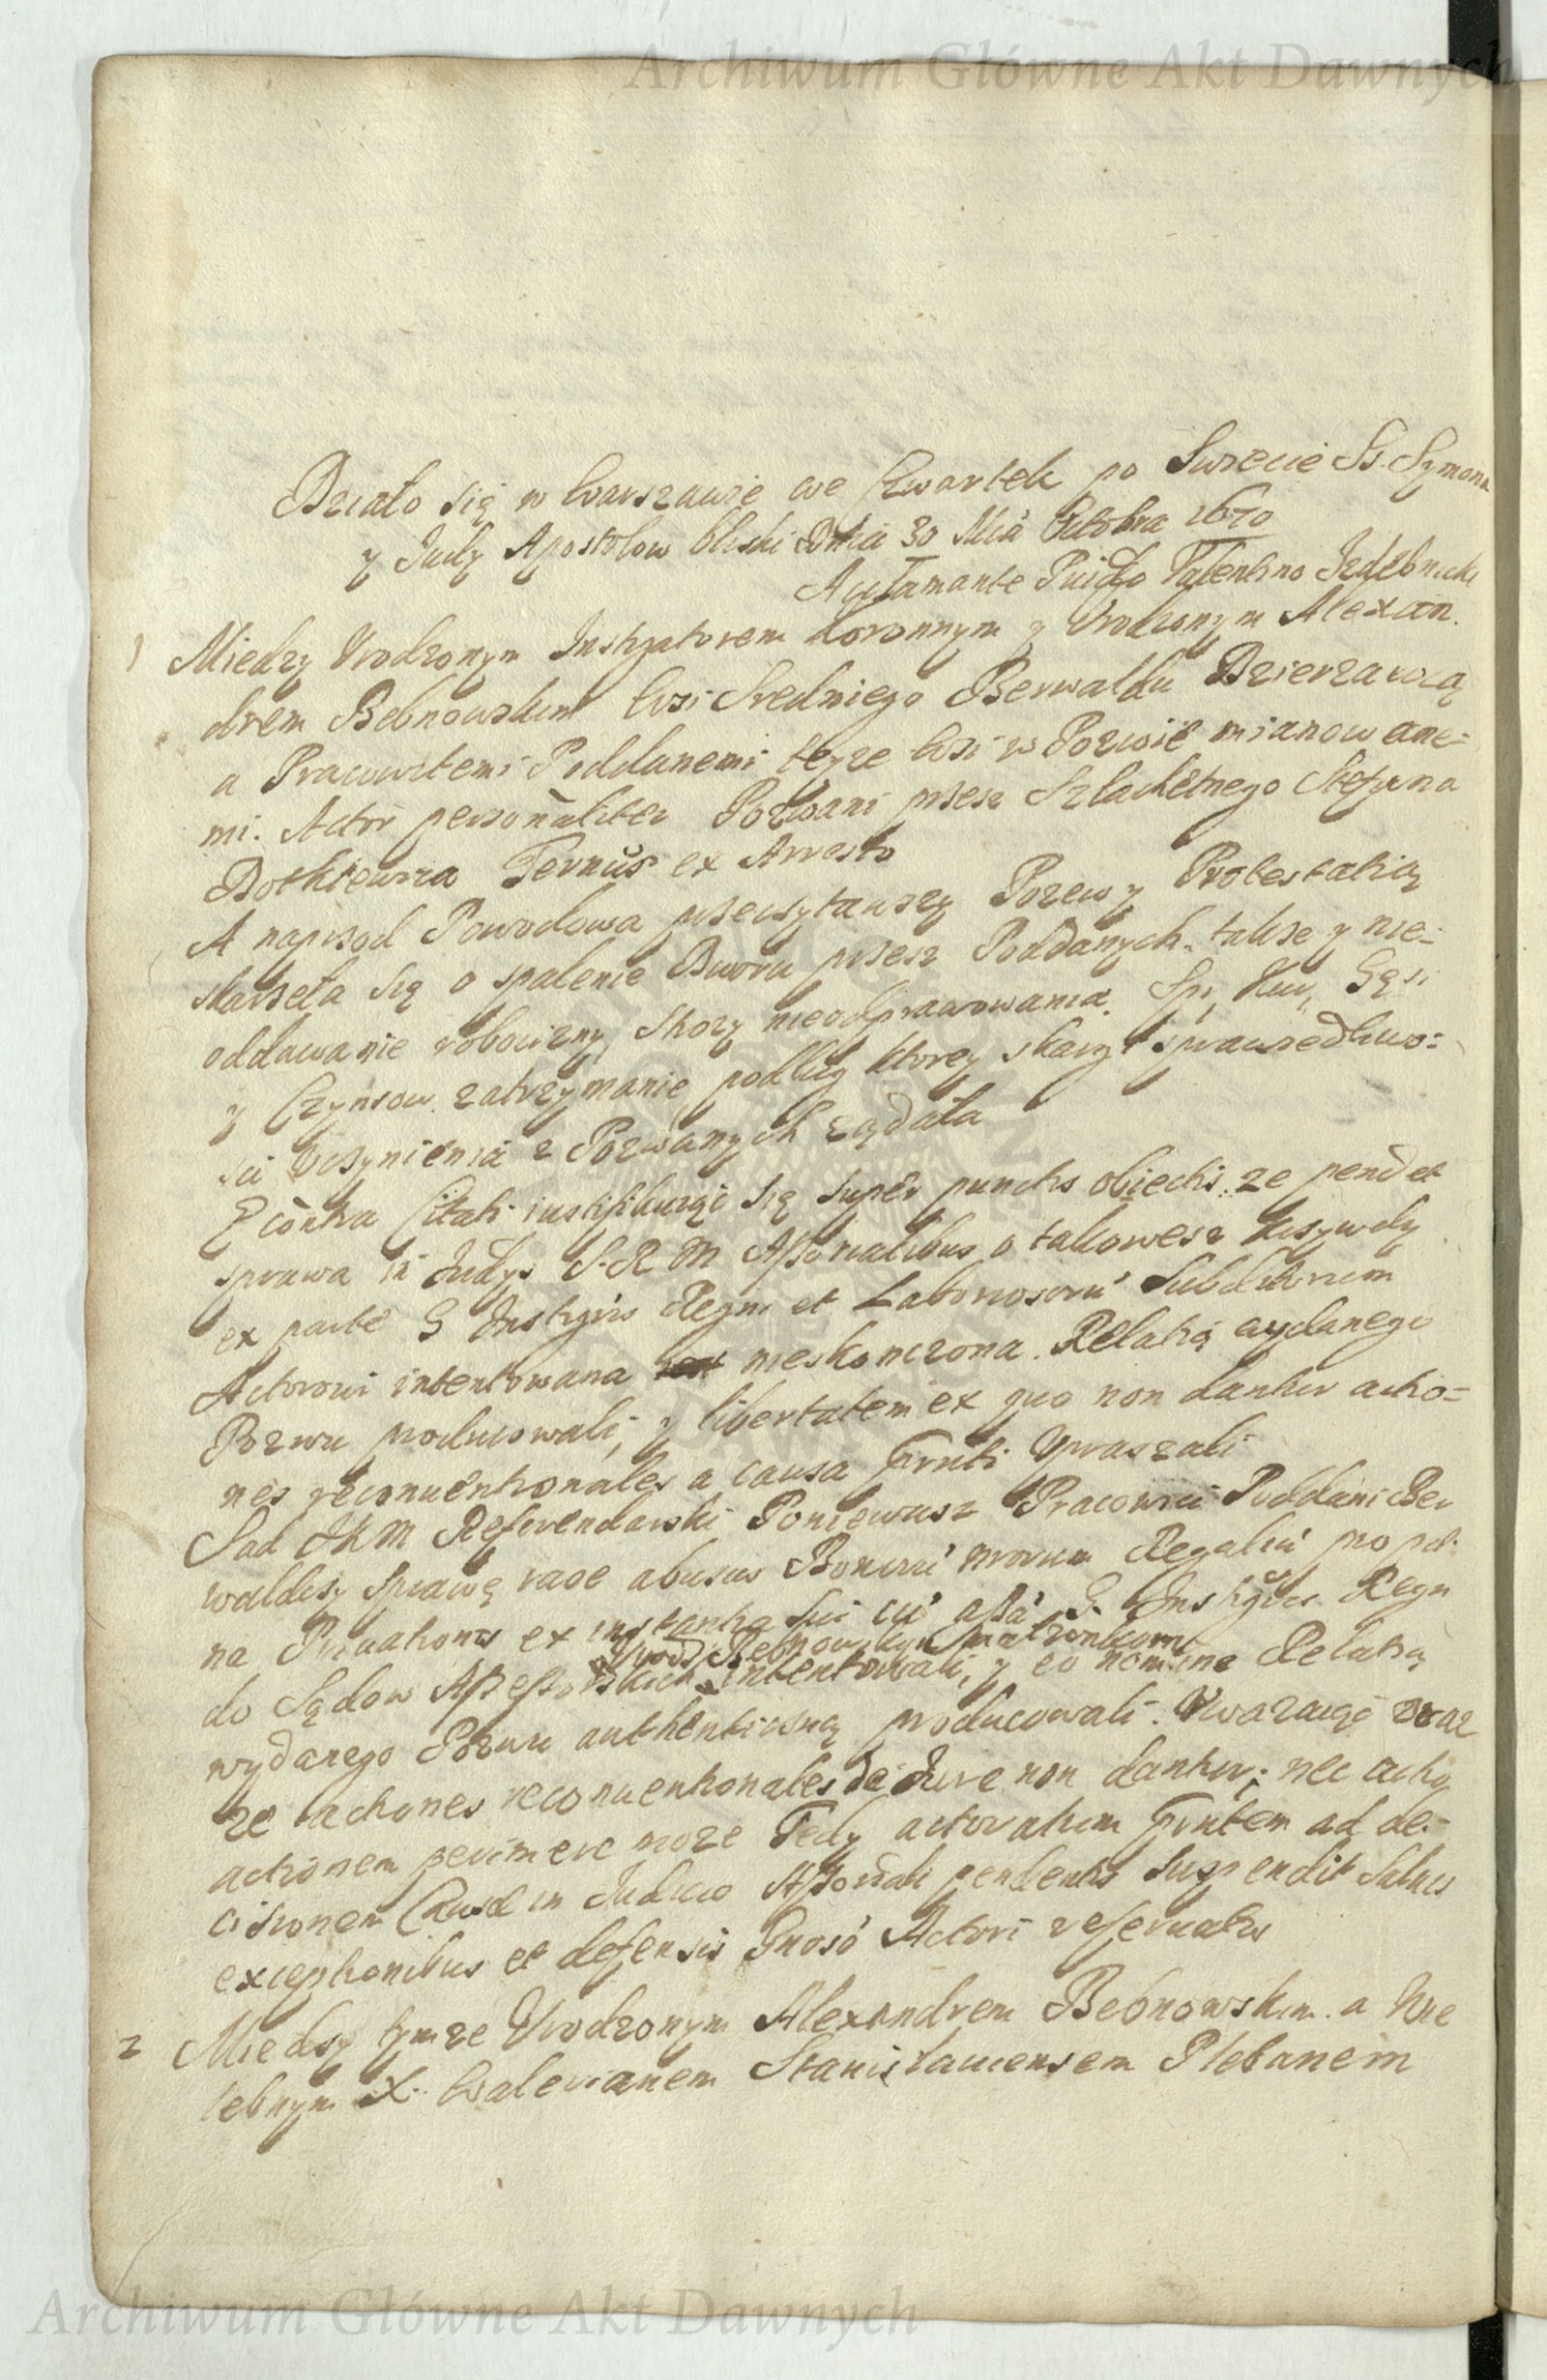 Archiwum Główne Akt Dawnych
Działo się w Warszawie we Czwartek po Swięcie SS. Szymona
y Judy Apostołow bliski Dnia 30 Mća Octobra 1670
Acclamante Valentino Izdebnicki
1 Miedzy Vrodzonym Instigatorem Koronnym y Vrodzonym Alexan.
drem Bebnowskim Wsi Sredniego Berwaldu Dzierzawcą
a Pracowitemi Poddanemi teyze Wsi w Pozwie mianowane=
mi. Actor personaliter Pozwani przez Szlachetnego Stefana
Bothiewicza Termus ex Arresto
A naprzod Powodowa przeczytawszy Pozew y Protestatią
skarzeła się o spalenie Dworu przesz Poddanych. takze y nie=
oddawanie robocizny, Stozy nieodprawowania. Spi, Kur, Gęsi
y Czynszow zatrzymanie, podług ktorey skargi sprawiedliwo=
sci Vczynienia z Pozwanych ządała
E contra Citati iustifikuiąc się super punctis obiectis, ze pendet
sprawa in Judys S. R M Assorialibus o takowesz krzywdy
ex parte G Instigris Regni et Laboriosorū Subditorum
Actorowi intentowana nieskonczona. Relatią wydanego
Pozwu producowali, y libertatem ex quo non dantur actio=
nes reconuentionales a causa prnti Vpraszali
Sad JKM Referendarski Poniewasz Pracowici Poddani Ber
waldscy Sprawę raoe abusus Bonorū morum Regaliū pro pæ.
na Priuationis ex instantia Sui cū assā G. Instigris Regni
Vrodz Bebnowskym małzonkom
do Sądow Assessorskich intentowali, y eo nomine Relatią
wydanego Pozwu authenticzną producowali. Vwazaiąc oraz
ze actiones reconuentionales de Jure non dantur; nec actio
actionem perimere moze Tedy actoratum prntem ad de=
cisionem Causæ in Judicio Assoriali pendentis Suspendit Saluis
exceptionibus et defensis Gnoso Actori reseruatis
2 Miedzy tymze Vrodzonym Alexandrem Bebnowskim. a Wie
lebnym X. Walerianem Stanisławensem Plebanem
Archiwum Główne Akt Dawnych